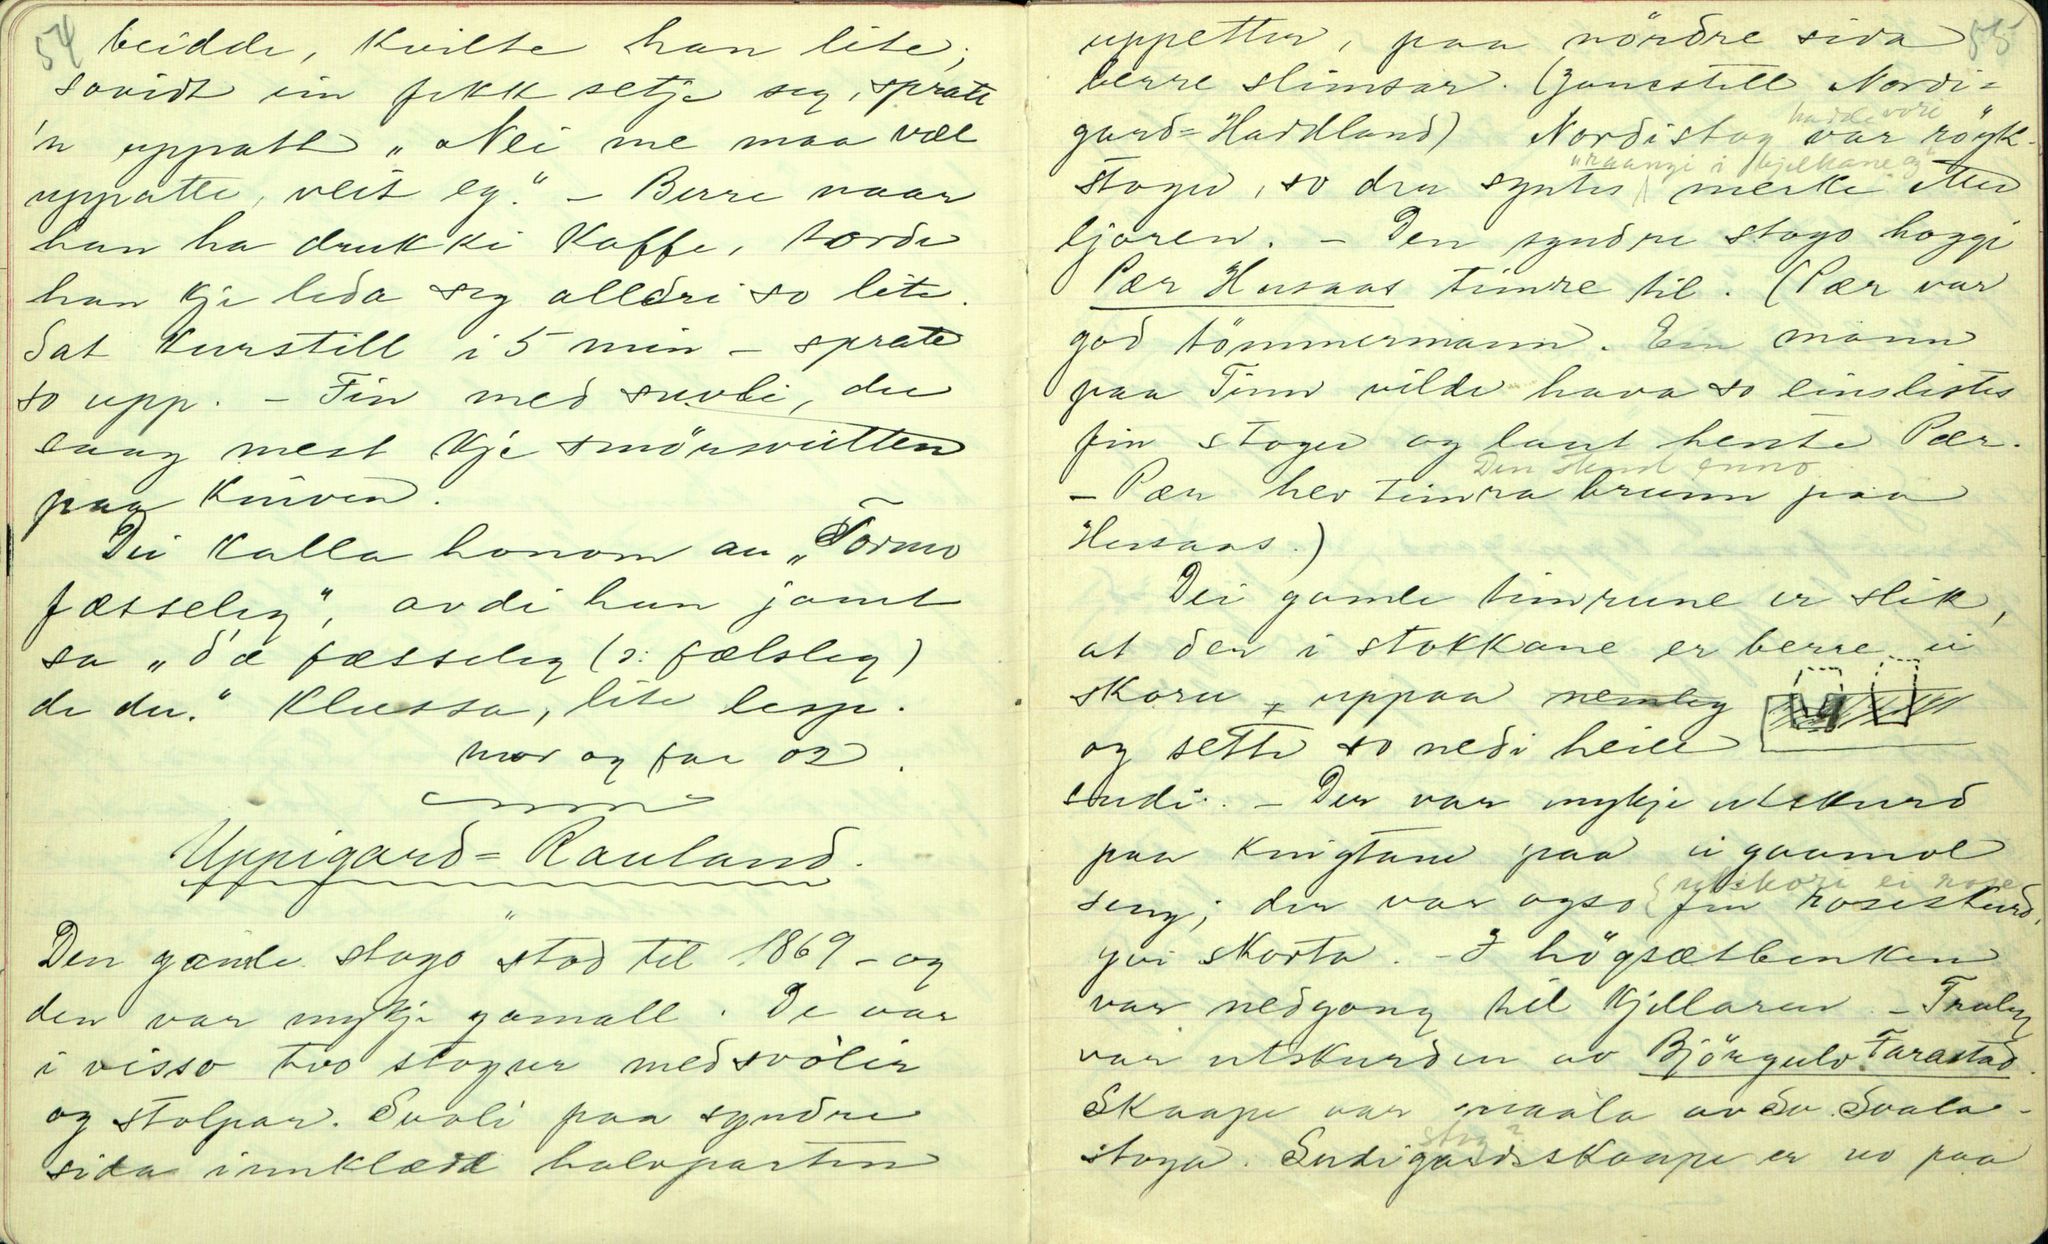 54
beidde, kvilte han lite;
sovidt ein fekk setje seg, sprate
'n uppatt „Nei me maa væl
uppatte, veit eg." - Berre naar
han ha drukki Kaffe, torde
han kje leda seg alldri so lite.
Sat kurstill i 5 min - sprate
so upp. - Fin med suvli, du
saag mest kje smörsvitten
paa kniven.
Dei kalla honom au „Tormo
fæsseleg", avdi han jamt
sa „d'æ fæsseleg (ɔ: fælsleg)
de du." Klussa, lite lesp.
mor og far og.
Uppigard = Rauland.
Den gamle stogo stod til 1869 - og
den var mykje gamall. De var
i visso two stogur med svolir
og stolpar. Svali paa syndre
sida innklædd halvparten
55
uppetter, paa nördre sida
berre slimsar. (Jamstell Nordi=
gard= Haddland) Nordistog var röyk-
hadde vori
stoger, so der syntes merke etter
„raangi i bjelkane og"
ljoren. - Den syndre stogo hoggi
Pær Husaas timre til. (Pær var
god tömmermann. Ein mann
paa Tinn vilde hava so einslistes
fin stoger og laut hente Pær.
Den stend enno
- Pær hev timra brunn paa
Husaas.)
Dei gamle timrune er slik,
at den i stokkane er berre ei
skoru, uppaa nemleg
og sette so nedi heile
endi. - Der var mykje utskurd
paa knigtane paa ei gaamol
utskori ei rose
seng; der var ogso fin roseskurd,
yvi skorta. - I högsætbenken
var nedgong til kjellaren. - Truleg
var utskurden av Björgulv Tarastad.
Skaape var maala av Sv. Svala-
stoga. Sudigardsskaape er no paa
stog?